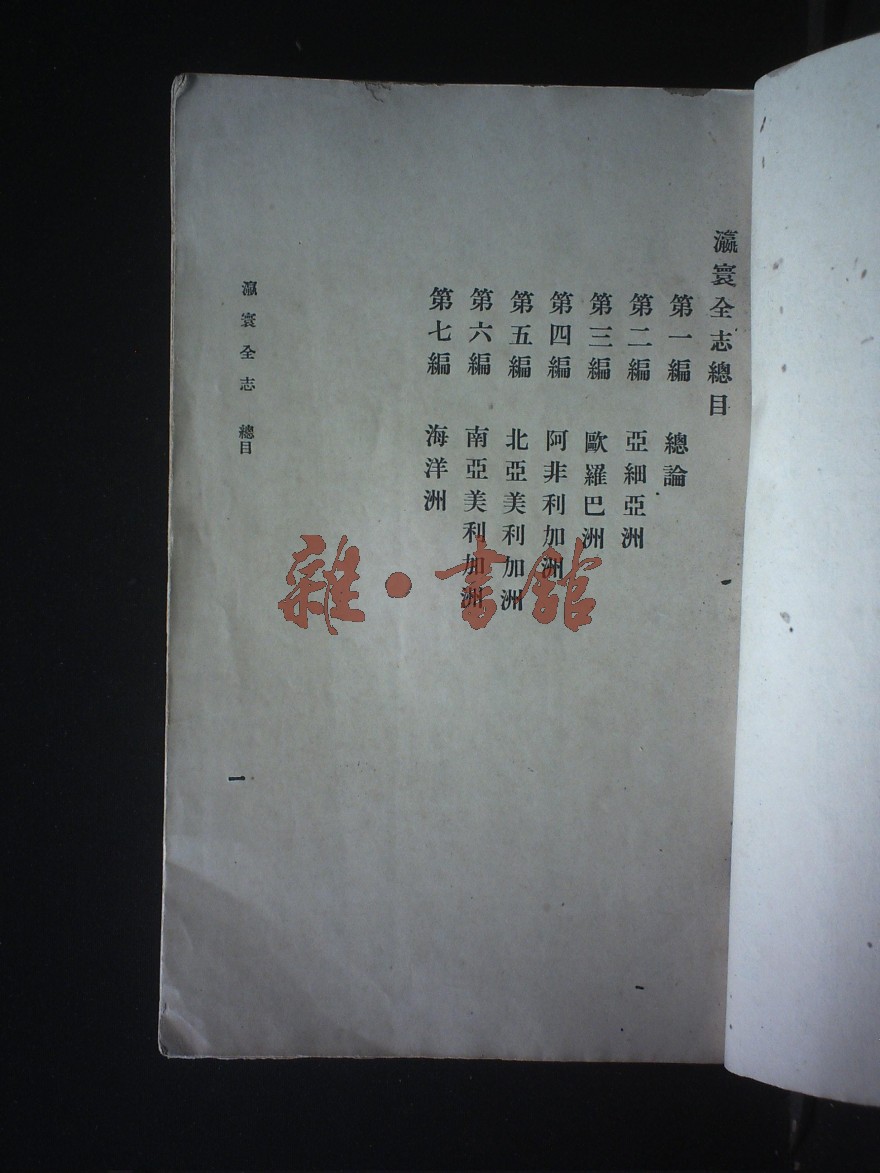 瀛寰全志總目
第一編 總論
第二編 亞細亞洲
第三編 歐羅巴洲
第四編 阿非利加洲
第五編 北亞美利加洲
第六編 南亞美利加洲
第七編 海洋洲
瀛寰全志 總目
一
雜·書館